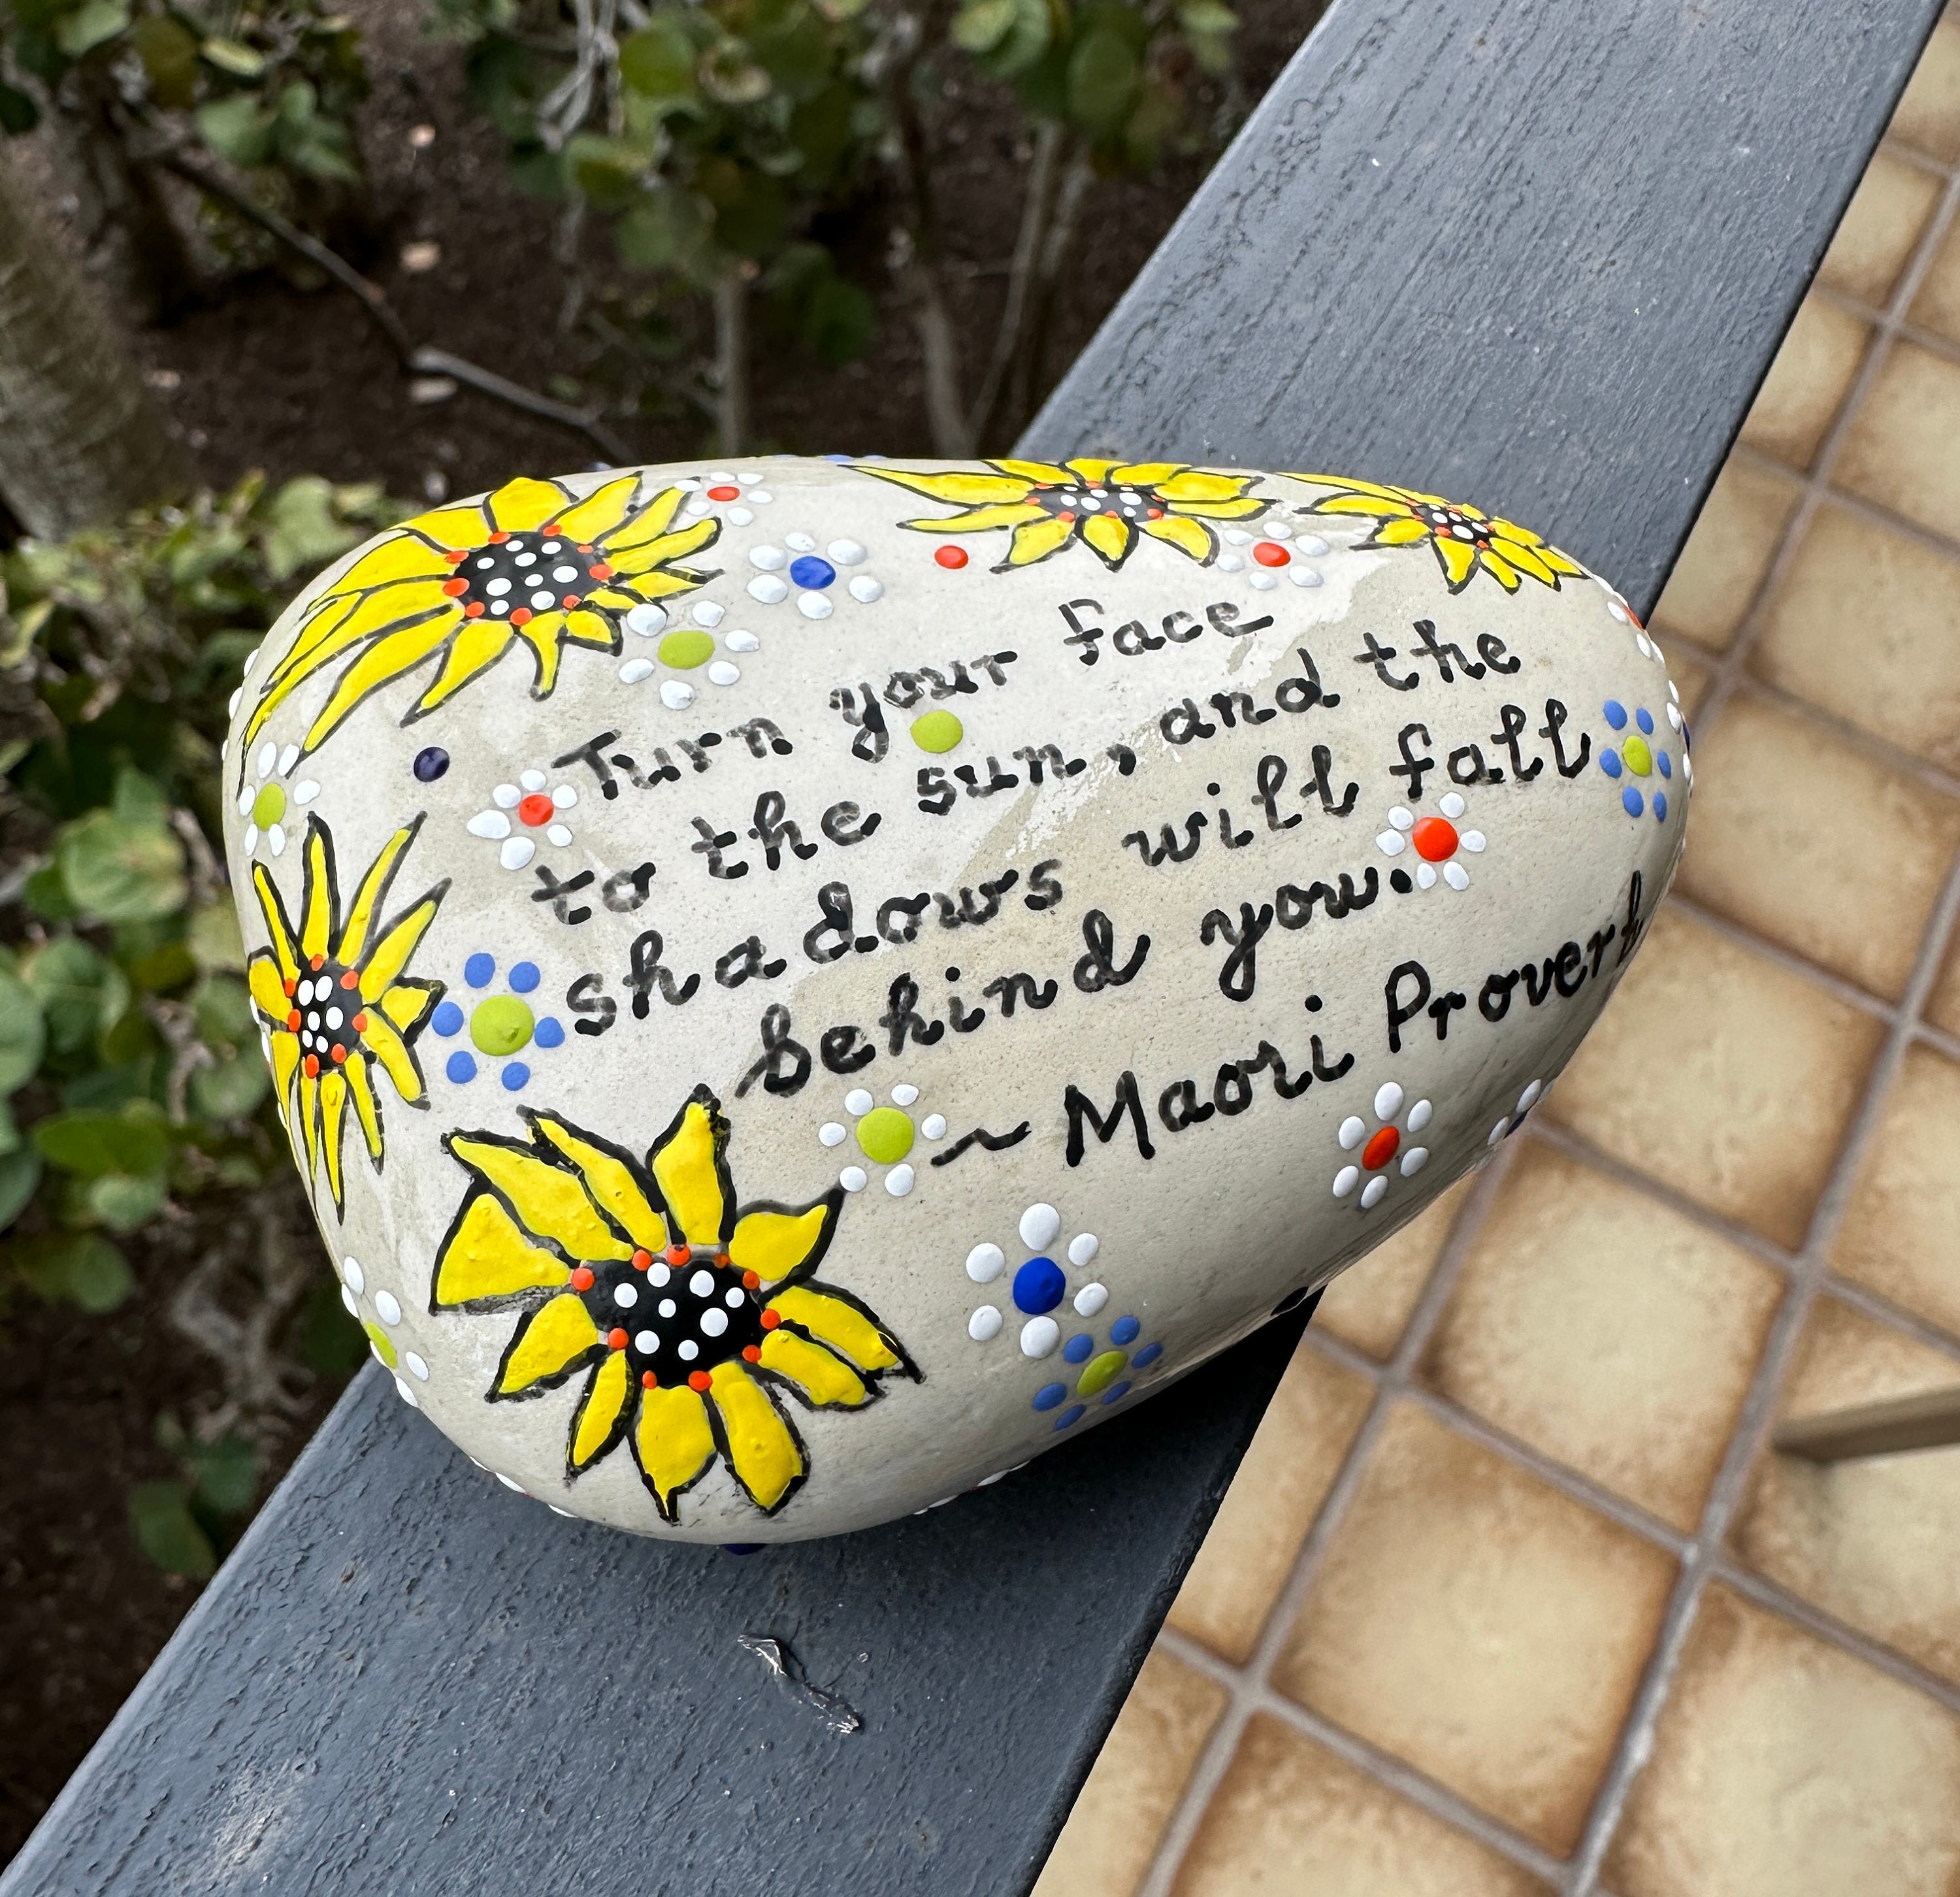 Turn your face
to the sun, and the
shadows will fall
behind you.
~ Maori Proverb